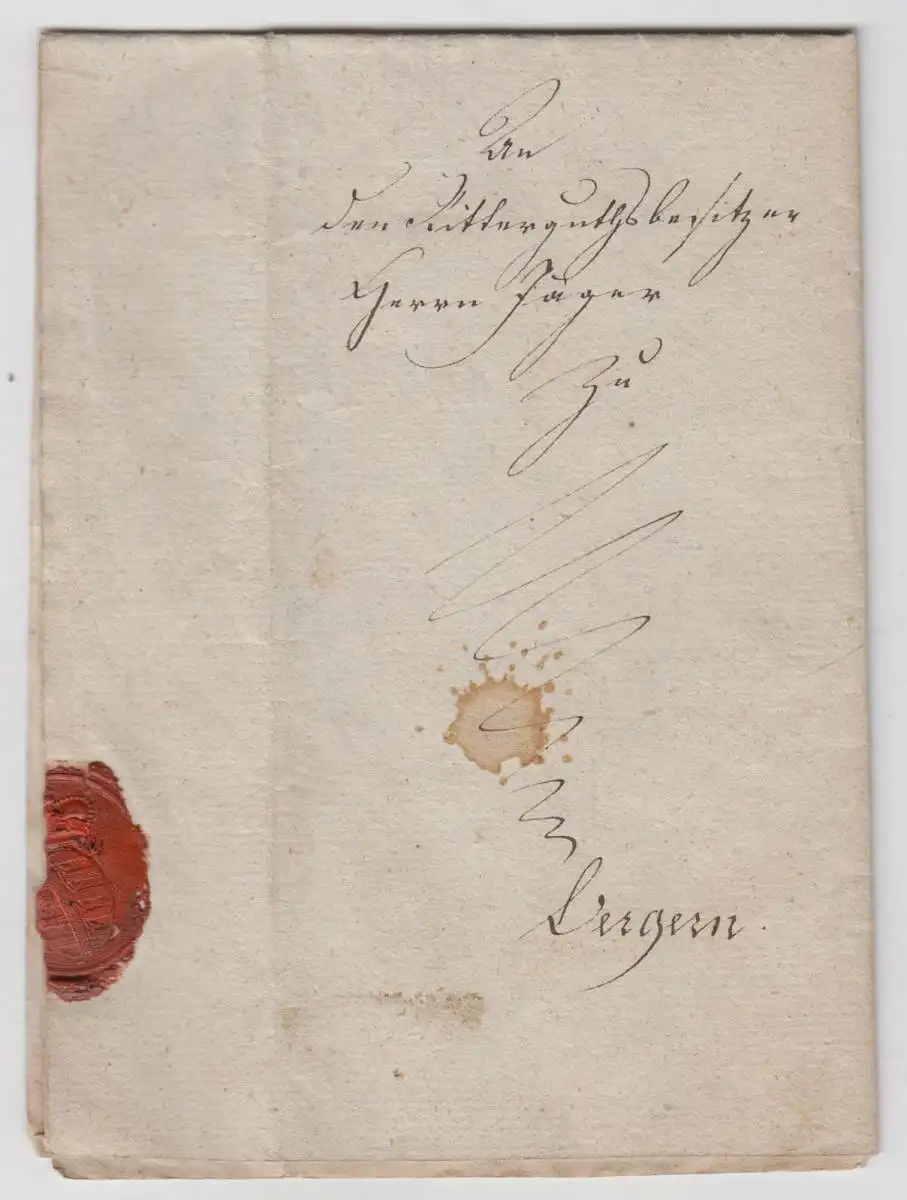 An
den Ritterguthsbesitzer
Herrn Jäger
zu
Bergern.